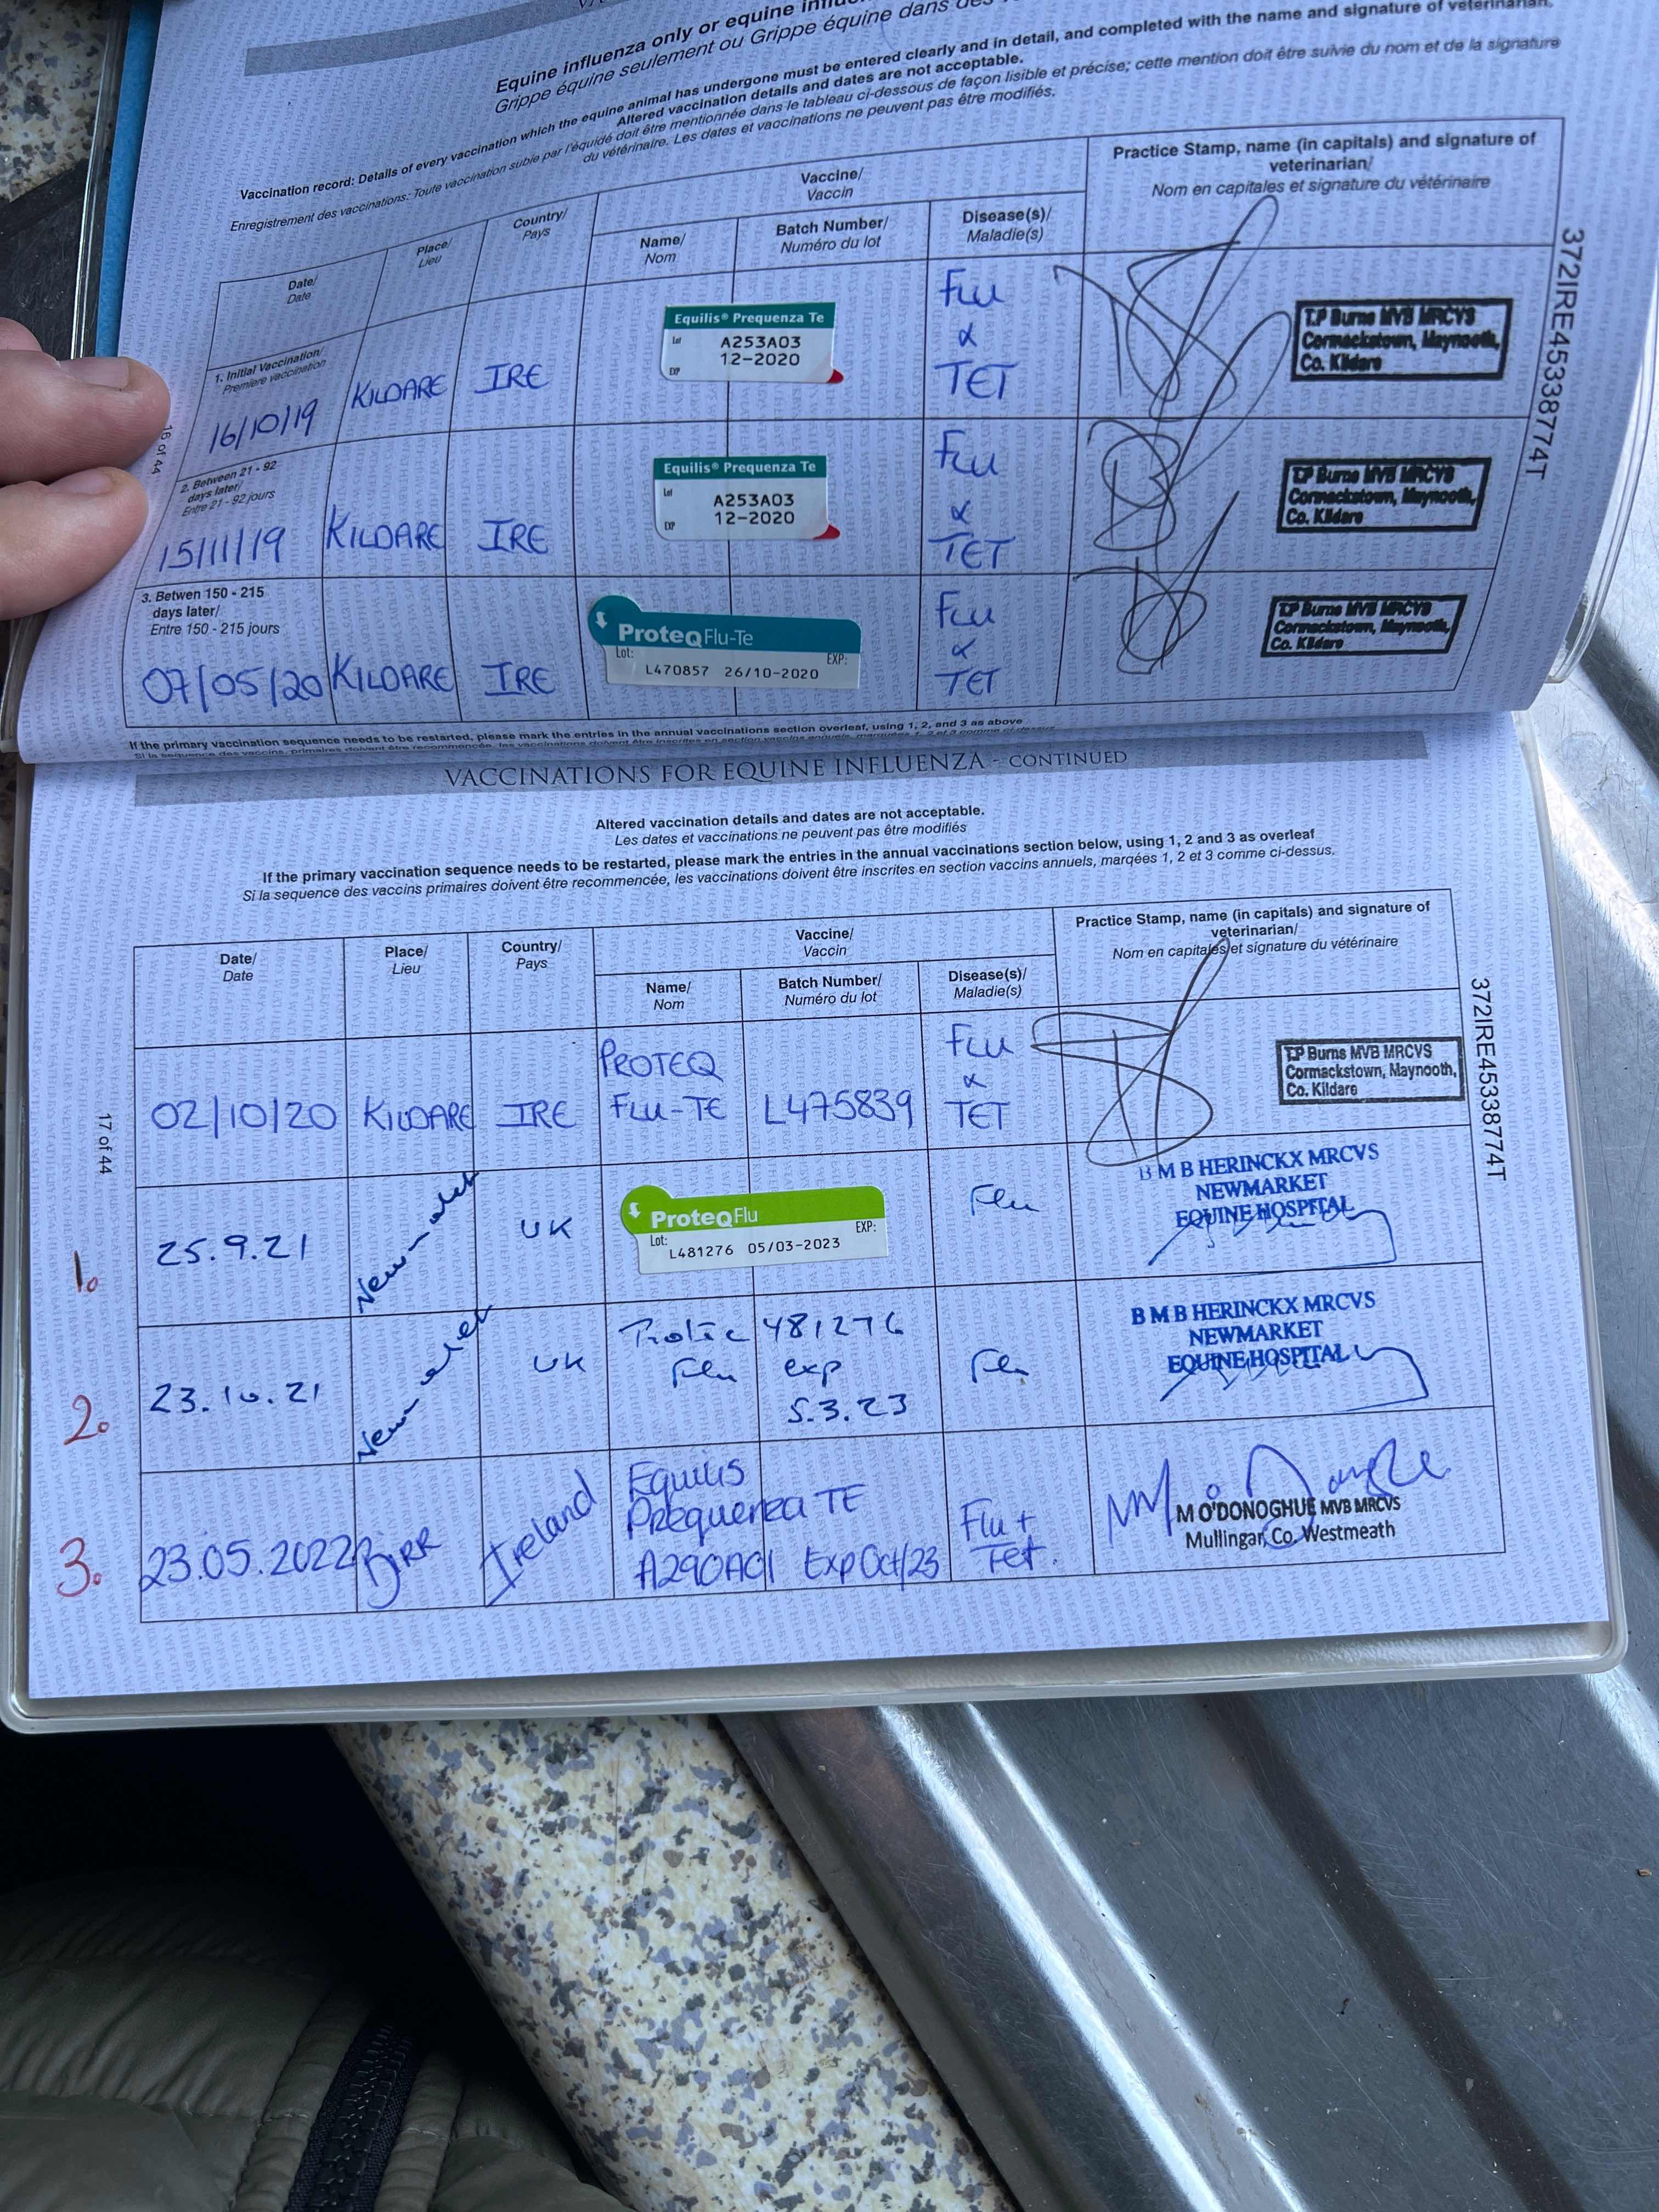 Equine influenza only or equine
Grippe équine seulement ou Grippe équine dans des
Vaccination record: Details of every vaccination which the equine animal has undergone must be entered clearly and in detail, and completed with the name and signature of veterinarian.
Altered vaccination details and dates are not acceptable.
Enregistrement des vaccinations: Toute vaccination subie par l'équidé doit être mentionnée dans le tableau ci-dessous de façon lisible et précise; cette mention doit être suivie du nom et de la signature
du vétérinaire. Les dates et vaccinations ne peuvent pas être modifiés.
Date/
Date
Place/
Lieu
Country/
Pays
Vaccine/
Vaccin
Name/
Nom
Batch Number/
Numéro du lot
Disease(s)/
Maladie(s)
Practice Stamp, name (in capitals) and signature of
veterinarian/
Nom en capitales et signature du vétérinaire
1. Initial Vaccination/
Premiere vaccination
16/10/19 KILDARE IRE
Equilis® Prequenza Te
Lot A253A03
12-2020
EXP
FLU
&
TET
T.P Burns MVB MRCVS
Cormackstown, Maynooth,
Co. Kildare
2. Between 21 - 92
days later/
Entre 21 - 92 jours
15/11/19 KILDARE IRE
Equilis® Prequenza Te
Lot A253A03
12-2020
EXP
FLU
&
TET
T.P Burns MVB MRCVS
Cormackstown, Maynooth,
Co. Kildare
3. Betwen 150 - 215
days later/
Entre 150 - 215 jours
07/05/20 KILDARE IRE
ProteqFlu-Te
Lot: EXP:
L470857 26/10-2020
FLU
&
TET
T.P Burns MVB MRCVS
Cormackstown, Maynooth,
Co. Kildare
16 of 44
372IRE45338774T
If the primary vaccination sequence needs to be restarted, please mark the entries in the annual vaccinations section overleaf, using 1, 2, and 3 as above
Si la sequence des vaccins primaires doivent être recommencée, les vaccinations doivent être inscrites en section vaccins annuels, marquées 1, 2 et 3 comme ci-dessus
VACCINATIONS FOR EQUINE INFLUENZA - CONTINUED
Altered vaccination details and dates are not acceptable.
Les dates et vaccinations ne peuvent pas être modifiés
If the primary vaccination sequence needs to be restarted, please mark the entries in the annual vaccinations section below, using 1, 2 and 3 as overleaf
Si la sequence des vaccins primaires doivent être recommencée, les vaccinations doivent être inscrites en section vaccins annuels, marqées 1, 2 et 3 comme ci-dessus.
Date/
Date
Place/
Lieu
Country/
Pays
Vaccine/
Vaccin
Name/
Nom
Batch Number/
Numéro du lot
Disease(s)/
Maladie(s)
Practice Stamp, name (in capitals) and signature of
veterinarian/
Nom en capitales et signature du vétérinaire
02/10/20 KILDARE IRE
PROTEQ
FLU-TE L475839
FLU
&
TET
T.P Burns MVB MRCVS
Cormackstown, Maynooth,
Co. Kildare
1. 25.9.21 Newmarket UK
ProteqFlu
Lot: EXP:
L481276 05/03-2023
Flu
B M B HERINCKX MRCVS
NEWMARKET
EQUINE HOSPITAL
2. 23.10.21 Newmarket UK
Flu
481276
exp
5.3.23
Flu
B M B HERINCKX MRCVS
NEWMARKET
EQUINE HOSPITAL
3. 23.05.2022 BIRR Ireland
Equilis
Prequenza TE
A290A01 Exp Oct/23
Flu +
Tet.
M O'DONOGHUE MVB MRCVS
Mullingar, Co. Westmeath
17 of 44
372IRE45338774T